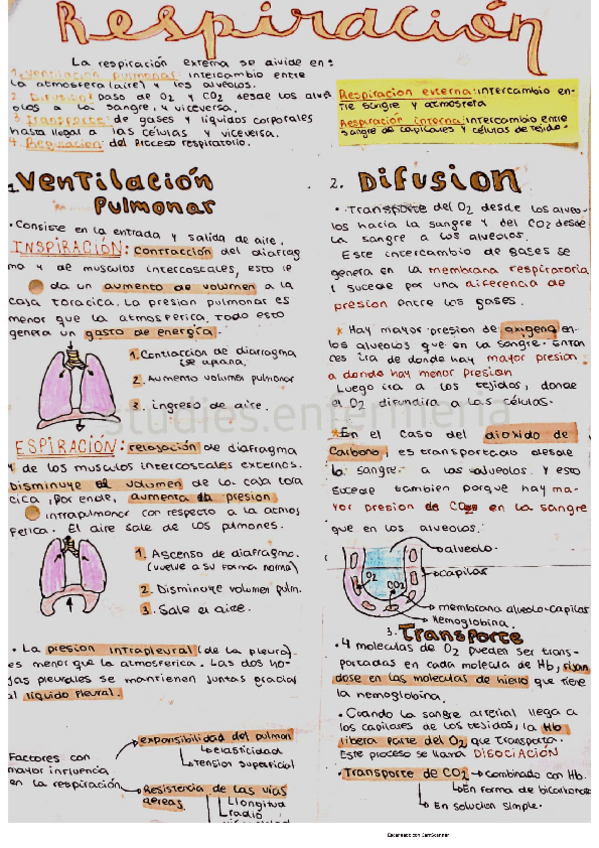 Respiración
La respiración externa se divide en:
1. Ventilación pulmonar: intercambio entre
la atmosfera (aire) y los alveolos.
2. Difusion: paso de O2 y CO2 desde los alve
olos a la sangre, y viceversa.
3. Transporte: de gases y liquidos corporales
hasta llegar a las células y viceversa.
4. Regulacion: del proceso respiratorio.
Respiracion externa: intercambio en-
tre sangre y atmosfera
Respiración interna: intercambio entre
sangre de capilares y células de tejido.
1. Ventilación
Pulmonar
• Consiste en la entrada y salida de aire.
INSPIRACIÓN: contracción del diafrag
ma y de musculos intercoscales, esto le
da un aumento de volumen a la
caja toracica. La presion pulmonar es
menor que la atmosferica. Todo esto
genera un gasto de energia.
1. Contraccion de diafragma
se aplana.
2. Aumento volumen pulmonar
3. ingreso de aire.
ESPIRACIÓN: relajación de diafragma
y de los musculos intercoscales externos.
Disminuye el volumen de la caja tora
cica, por ende, aumenta la presion
intrapulmonar con respecto a la atmos
ferica. El aire sale de los pulmones.
1. Ascenso de diafragma.
(vuelve a su forma normal)
2. Disminuye volumen pulm.
3. Sale el aire.
• La presion intrapleural (de la pleura)
es menor que la atmosferica. Las dos ho-
jas pleurales se mantienen juntas gracias
al liquido pleural.
Factores con
mayor influencia
en la respiración
expansibilidad del pulmon
elasticidad
Tension superficial
Resistencia de las vias
aereas.
Longitud
radio
2. Difusion
• Transporte del O2 desde los alveo-
los hacia la sangre y del CO2 desde
la sangre a los alveolos.
Este intercambio de gases se
genera en la membrana respiratoria
y sucede por una diferencia de
presion entre los gases.
* Hay mayor presion de oxigeno en
los alveolos que en la sangre. Enton
ces ira de donde hay mayor presion
a donde hay menor presion
Luego ira a los tejidos, donde
el O2 difundira a las células.
* En el caso del dioxido de
Carbono, es transportado desde
la sangre a los alveolos. Y esto
sucede tambien porque hay ma-
yor presion de CO2 en la sangre
que en los alveolos.
alveolo.
capilar
O2
CO2
membrana alveolo-capilar
Hemoglobina.
3. Transporte
• 4 moleculas de O2 pueden ser trans-
portadas en cada molecula de Hb, fijan
dose en las moleculas de hierro que tiene
la hemoglobina.
• Cuando la sangre arterial llega a
los capilares de los tejidos, la Hb
libera parte del O2 que transporta.
Este proceso se llama DISOCIACIÓN
• Transporte de CO2 → Combinado con Hb.
En forma de bicarbonato
En solucion simple.
studies.enfermeria
Escaneado con CamScanner